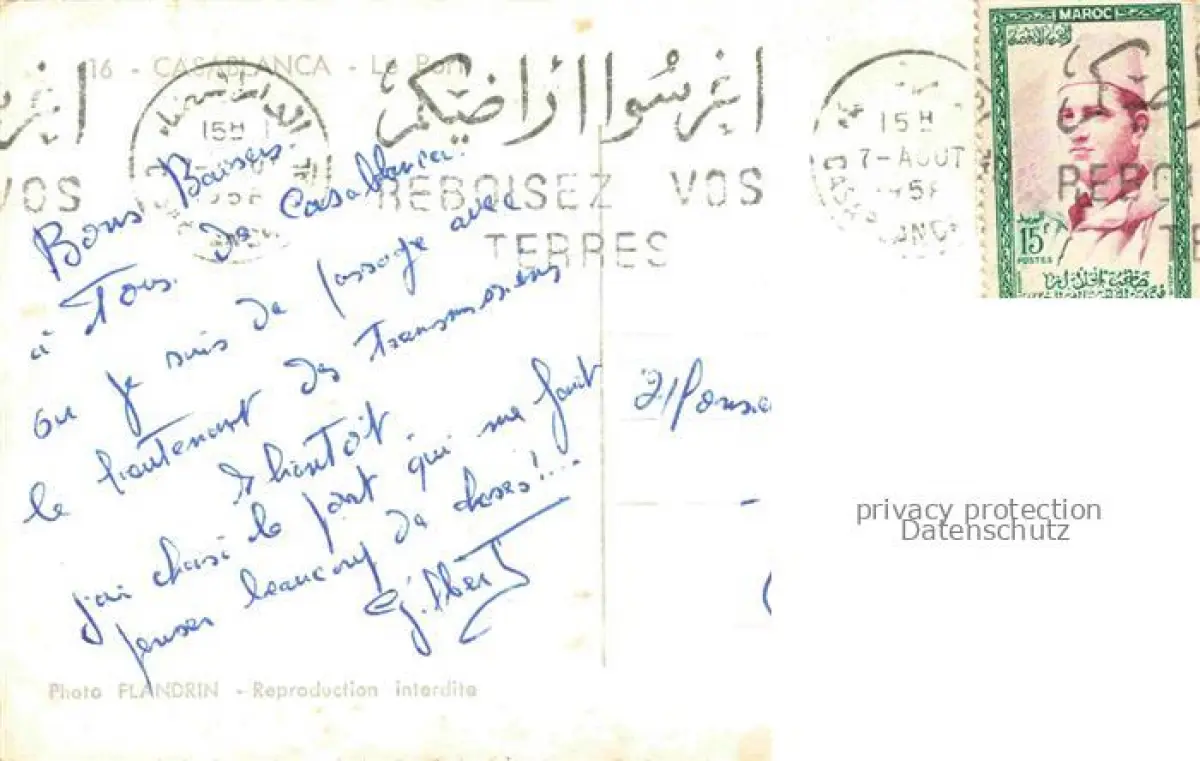 16 - CASABLANCA - Le Port
اغرسوا أراضيكم
REBOISEZ VOS
TERRES
VOS
15H
الدار البيضاء
15H
7-AOUT
MAROC
15
POSTES
REBO
TE
Bons Baisers
à Tous. De Casablanca.
ou je suis de passage avec
le lieutenant des Transmissions
A bientôt
j'ai choisi le port qui me fait
penser beaucoup de choses!...
Gilbert
Photo FLANDRIN - Reproduction interdite
privacy protection
Datenschutz